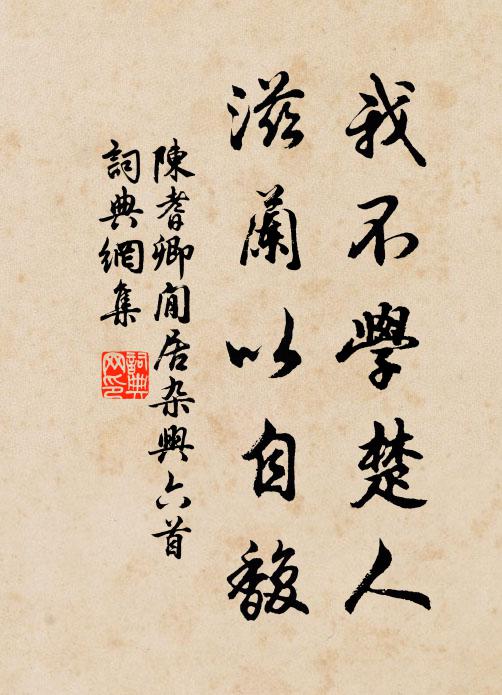 我不學楚人
滋蘭以自馥
陳耆卿閒居杂興六首
詞典網集
詞典网印